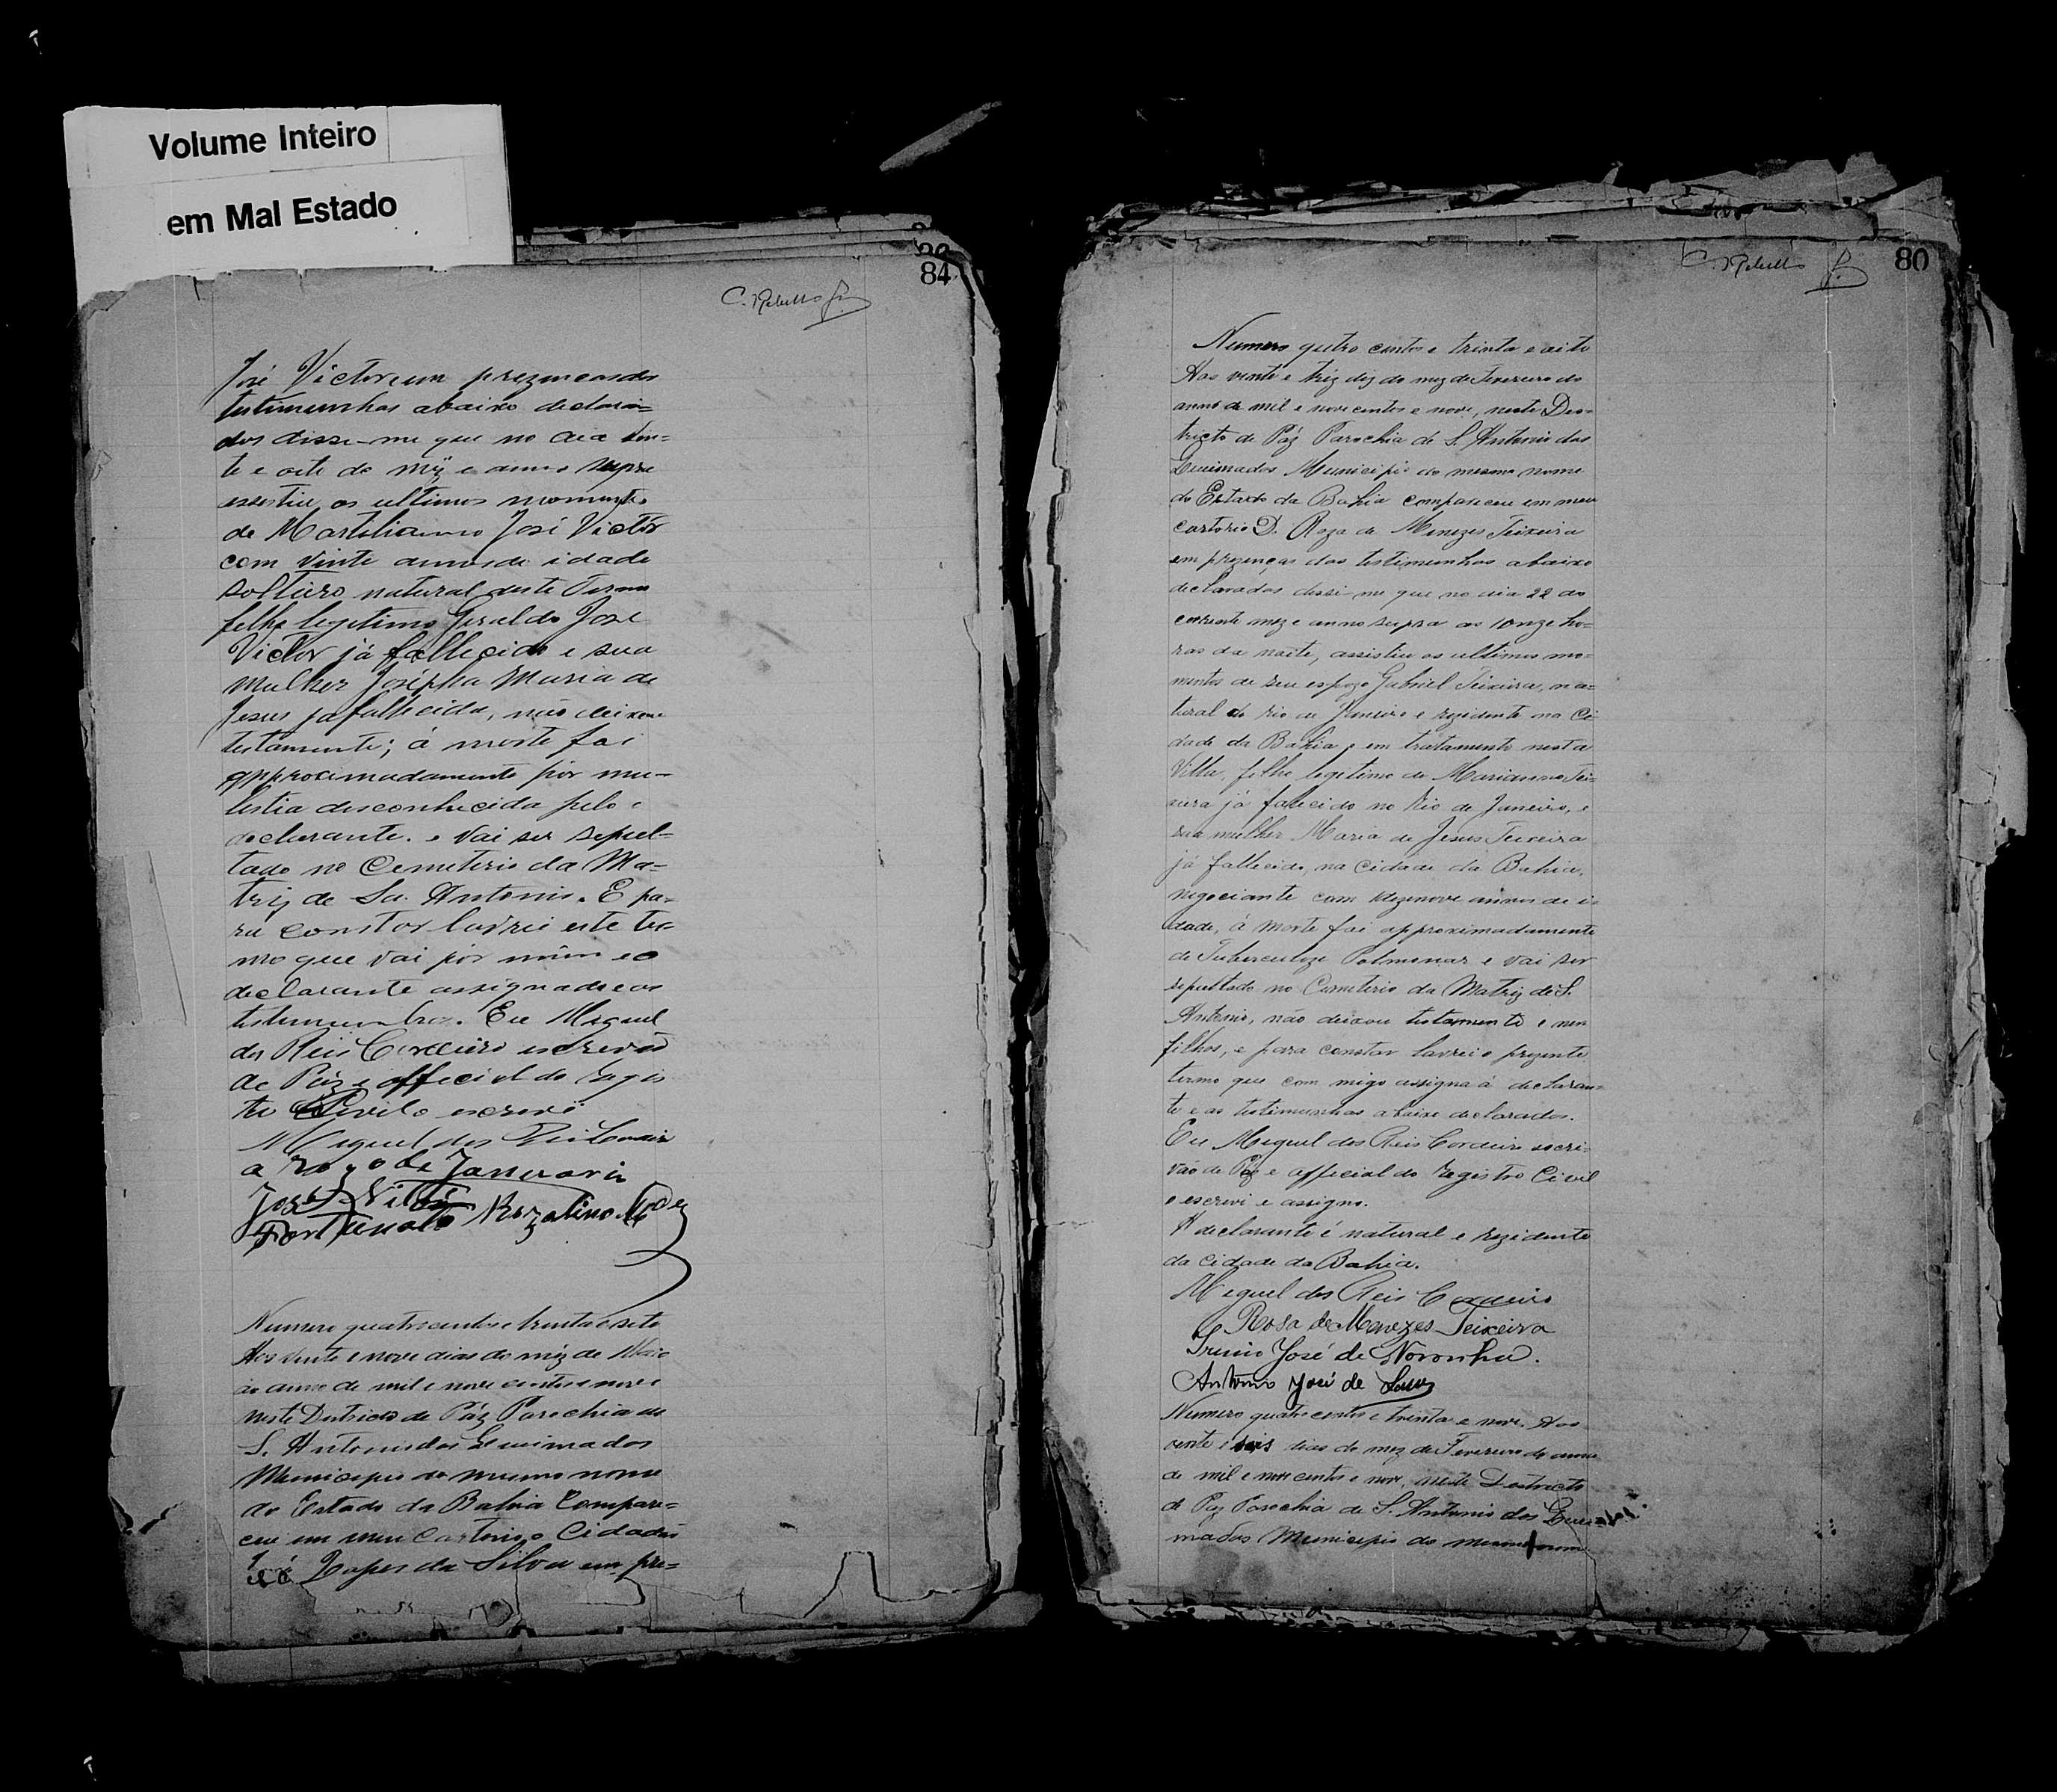 Volume Inteiro
em Mal Estado
84
C. Rebello Jr.
José Victor em prezencasdas
testimunhas abaixo declara=
dos disse-me que no dia vin=
te e oito do mez e anno supra
assistiu os ultimos momentos
de Martiliano José Victor
com vinte annos de idade
solteiro natural deste Termo
filho legitimo Geraldo José
Victor já fallecido e sua
mulher Josépha Maria de
Jesus ja fallecida, não deixou
testamento; á morte foi
approximadamente pór mo=
lestia desconhecida pelo
declarante. e vai ser sepul=
tado no Cemiterio da Ma=
triz de Sa. Antonio. E pa=
ra constar lavrei este ter=
mo que vai pór mim e o
declarante assignado e as
testimunhas. Eu Miguel
dos Reis Cordeiro escrevão
de Páz e official do regis
tro Civil o escrevi
Miguel dos Reis Cordeiro
a rogo de Januario
José Victor
Fortunato Rozalino
Numero quatrocentos e trinta e sete
Aos vinte e nove dias do mêz de Maio
do anno de mil e nove centos e nove
neste Districto de Páz Parochia de
S. Antonio das Queimadas
Municipio do mesmo nome
do Estado da Bahia Compare=
ceu em meu Cartorio o Cidadão
José Lopes da Silva em pre=
80
C. Rebello Jr.
Numero qutro centos e trinta e oito
Aos vinte e trez diz do mez de Fevereiro do
anno de mil e nove centos e nove, neste Dis=
tricto de Páz Parochia de S. Antonio das
Queimadas Municipio do mesmo nome
do Estado da Bahia compareceu em meu
cartorio D. Roza de Menezes Teixeira
em prezenças das testimunhas abaixo
declarados dissi-me que no dia 22 do
corrente mez e anno supra as 10nze ho=
ras da noite, assistiu os ultimos mo=
mentos de seu espozo Gabriel Teixeira, na=
tural do Rio de Janeiro e rezidente na Ci
dade da Bahia e em tratamento nesta
Villa, filho legitimo de Marianno Tei=
xeira já falicido no Rio de Janeiro, e
sua mulher Maria de Jesus Teixeira
já fallecido, na cidade da Bahia,
negociante com dezenove annos de i=
dade, á morte foi approximadamente
de Tuberculoze Polmonar e vai ser
sepultado no Cemiterio da Matriz de S.
Antonio, não deixou testamento e nem
filhos, e para constar lavrei o prezente
termo que com migo assigna á declaran=
te e as testimunhas abaixo declarados.
Eu Miguel dos Reis Cordeiro escri=
vão de Paz e official do registro Civil
o escrevi e assigno.
A declarante é natural e rezidente
da cidade da Bahia.
Miguel dos Reis Cordeiro
Rosa de Menezes Teixeira
Irenio José de Noronha.
Antonio José de Souza
Numero quatrocentos e trinta e nove. Aos
vente e seis dias do mez de Fevereiro do anno
de mil e nove centos e nove, neste Destricto
de Paz Parochia de S. Antonio das Quei
madas Municipio do mesmo nome